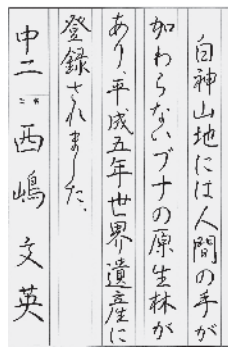 白神山地には人間の手が
加わらないブナの原生林が
あり、平成五年世界遺産に
登録されました。
中二 西嶋 文英